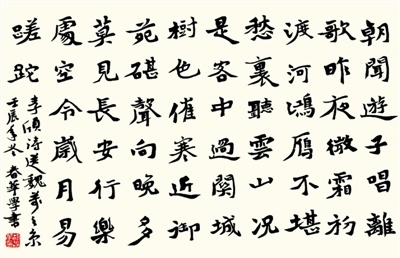 朝聞遊子唱離
歌昨夜微霜初
渡河鴻鴈不堪
愁裏聽雲山況
是客中過關城
樹色催寒近御
苑碪聲向晚多
莫見長安行樂
處空令歲月易
蹉跎
李頎詩送魏萬之京
壬辰年冬春華學書